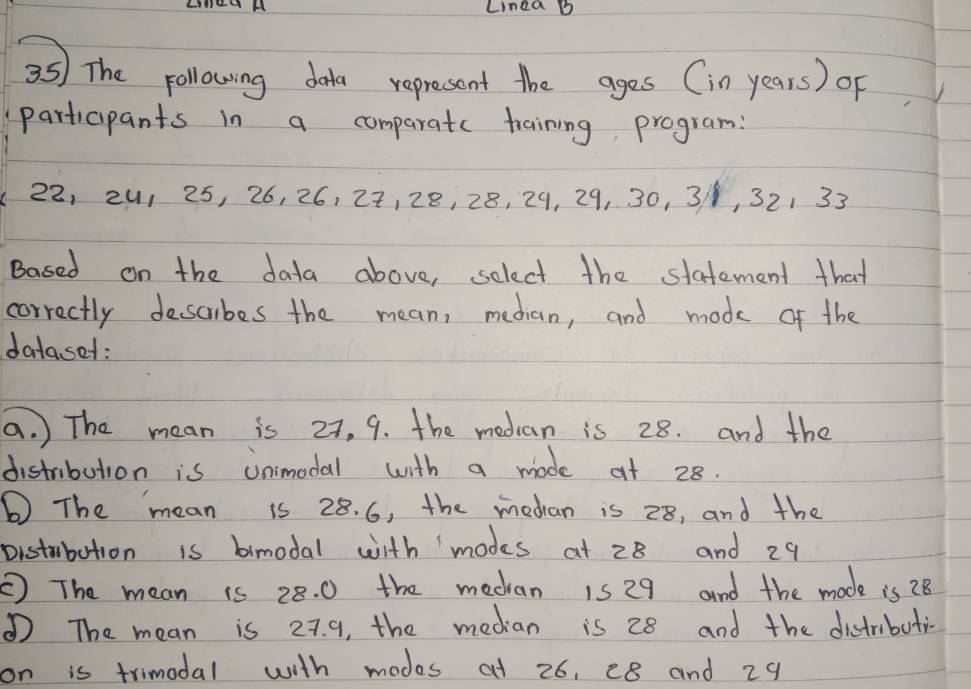 Linea A Linea B
35) The following data represent the ages (in years) of
participants in a comparate training program:
22, 24, 25, 26, 26, 27, 28, 28, 29, 29, 30, 31, 32, 33
Based on the data above, select the statement that
correctly describes the mean, median, and mode of the
dataset:
a.) The mean is 27.9. the median is 28. and the
distribution is unimodal with a mode at 28.
b) The mean is 28.6, the median is 28, and the
Distribution is bimodal with modes at 28 and 29
c) The mean is 28.0 the median is 29 and the mode is 28
d) The mean is 27.9, the median is 28 and the distributi-
on is trimodal with modes at 26, 28 and 29